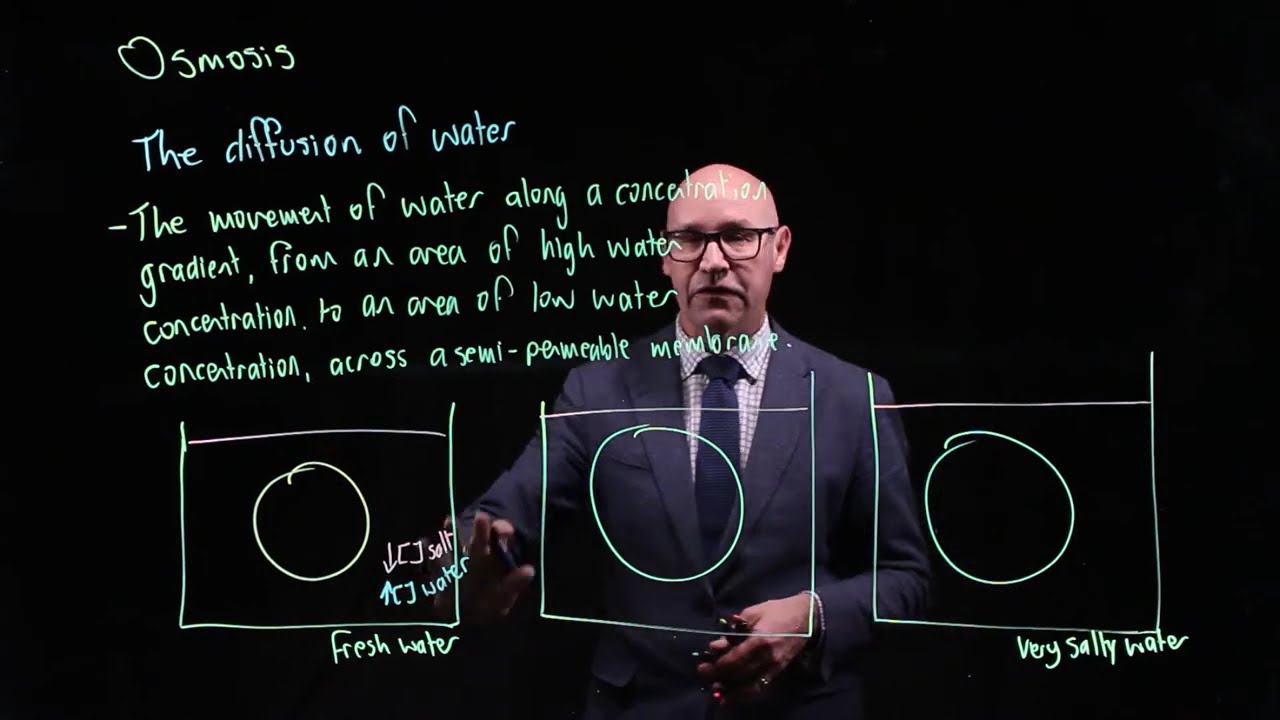 Osmosis
The diffusion of water
- The movement of water along a concentration
gradient, from an area of high water
concentration. to an area of low water
concentration, across a semi-permeable membrane.
↓[] salt
↑[] water
Fresh water
Very Salty water